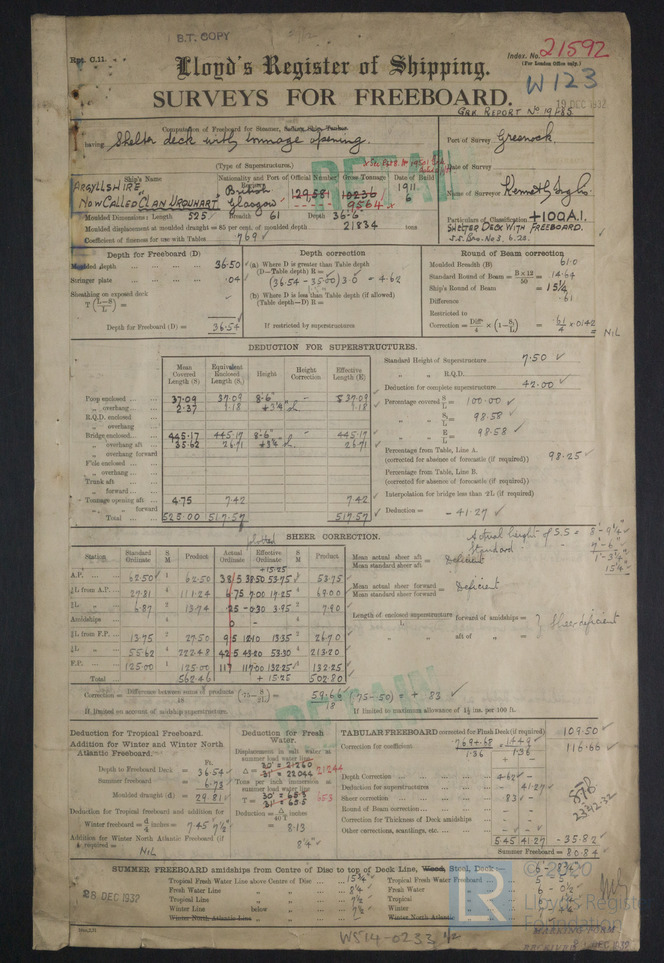 B.T. COPY
Rpt. C.11.
Index. No. 21592
(For London Office only.)
Lloyd's Register of Shipping.
W123
SURVEYS FOR FREEBOARD.
19 DEC 1932
Grk. Report No 19485
Computation of Freeboard for Steamer,
having Shelter deck with tonnage opening.
(Type of Superstructures.)
Port of Survey Greenock
Date of Survey
Name of Surveyor
Particulars of Classification +100A.1.
SHELTER DECK WITH FREEBOARD.
Ship's Name
Nationality and Port of Registry
Official Number
Gross Tonnage
Date of Build
ARGYLLSHIRE
NOW CALLED "CLAN URQUHART"
British
Glasgow
129,581
10236
9564
1911
6
Moulded Dimensions: Length 525 Breadth 61 Depth 36-6"
Moulded displacement at moulded draught = 85 per cent. of moulded depth 21834 tons
Coefficient of fineness for use with Tables .769
Depth for Freeboard (D)
Moulded depth 36.50
Stringer plate .04
Sheathing on exposed deck
T (L-S/L) =
Depth for Freeboard (D) = 36.54
Depth correction
(a) Where D is greater than Table depth
(D-Table depth) R =
(36.54 - 35.00) 3.0 = 4.62
(b) Where D is less than Table depth (if allowed)
(Table depth-D) R =
If restricted by superstructures
Round of Beam correction
Moulded Breadth (B) 61.0
Standard Round of Beam = B x 12/50 = 14.64
Ship's Round of Beam = 15¼
Difference .61
Restricted to
Correction = Diff/4 x (1 - S/L) = .61/4 x .0142 = NIL
DEDUCTION FOR SUPERSTRUCTURES.
Mean Covered Length (S)
Equivalent Enclosed Length (S₁)
Height
Height Correction
Effective Length (E)
Poop enclosed 37.09 37.09 8-6" - 37.09
" overhang 2.37 1.18 1.18
R.Q.D. enclosed
" overhang
Bridge enclosed 445.17 445.17 8-6" - 445.17
" overhang aft 35.62 26.71 26.71
" overhang forward
F'cle enclosed
" overhang
Trunk aft
" forward
Tonnage opening aft 4.75 7.42 7.42
" " forward
Total 525.00 517.57 517.57
Standard Height of Superstructure 7.50
" " R.Q.D.
Deduction for complete superstructure 42.00
Percentage covered S/L = 100.00
" S₁/L = 98.58
" E/L = 98.58
Percentage from Table, Line A.
(corrected for absence of forecastle (if required)) 98.25
Percentage from Table, Line B.
(corrected for absence of forecastle (if required))
Interpolation for bridge less than .2L (if required)
Deduction = - 41.27
SHEER CORRECTION.
Actual height of S.S = 8'-9¼"
Standard = 7'-6"
1'-3¼"
15¼"
Station
Standard Ordinate
S M
Product
Actual Ordinate
Effective Ordinate
S M
Product
+ 15.25
A.P. 62.50 1 62.50 38.5 38.50 53.75 1 53.75
⅙L from A.P. 27.81 4 111.24 6.75 7.00 17.25 4 69.00
⅓L " 6.87 2 13.74 .25 -0.30 3.95 2 7.90
Amidships 0 -
⅓L from F.P. 13.75 2 27.50 9.5 12.10 13.35 2 26.70
⅙L " 55.62 4 222.48 42.5 43.20 53.30 4 213.20
F.P. 125.00 1 125.00 117 117.00 132.25 1 132.25
Total 562.46 + 15.25 502.80
Mean actual sheer aft
Mean standard sheer aft = Deficient
Mean actual sheer forward
Mean standard sheer forward = Deficient
Length of enclosed superstructure forward of amidships =
" " aft of " =
Sheer deficient
Correction = Difference between sums of products/18 (.75 - S/2L) = 59.66/18 (.75-.50) = + .83
If limited on account of midship superstructure.
If limited to maximum allowance of 1½ ins. per 100 ft.
RETAIN
Deduction for Tropical Freeboard.
Addition for Winter and Winter North Atlantic Freeboard.
Ft.
Depth to Freeboard Deck = 36.54
Summer freeboard = 6.73
Moulded draught (d) = 29.81
Deduction for Tropical freeboard and addition for
Winter freeboard = d/4 inches = 7.45 7½"
Addition for Winter North Atlantic Freeboard (if required) =
NIL
Deduction for Fresh Water.
Displacement in salt water at summer load water line
30' = 21260
Δ = 21244
31' = 22044
Tons per inch immersion at summer load water line
T = 65.3
Deduction = Δ/40T inches
= 8.13
8¼"
TABULAR FREEBOARD corrected for Flush Deck (if required) 109.50
Correction for coefficient .769+.68/1.36 = 1.449/1.36 116.66
Depth Correction 4.62 -
Deduction for superstructures - 41.27
Sheer correction .83 -
Round of Beam correction
Correction for Thickness of Deck amidships
Other corrections, scantlings, etc.
5.45 41.27 - 35.82
Summer Freeboard = 80.84
SUMMER FREEBOARD amidships from Centre of Disc to top of Deck Line, Wood, Steel, Deck
Tropical Fresh Water Line above Centre of Disc 15¾"
Fresh Water Line " " 8¼"
Tropical Line " " 7½"
Winter Line below " " 7½"
Winter North Atlantic Line " "
Tropical Fresh Water Freeboard
Fresh Water "
Tropical "
Winter "
Winter North Atlantic "
28 DEC 1932
W514-0233 ½
© 2020
LR
Lloyd's Register
Foundation